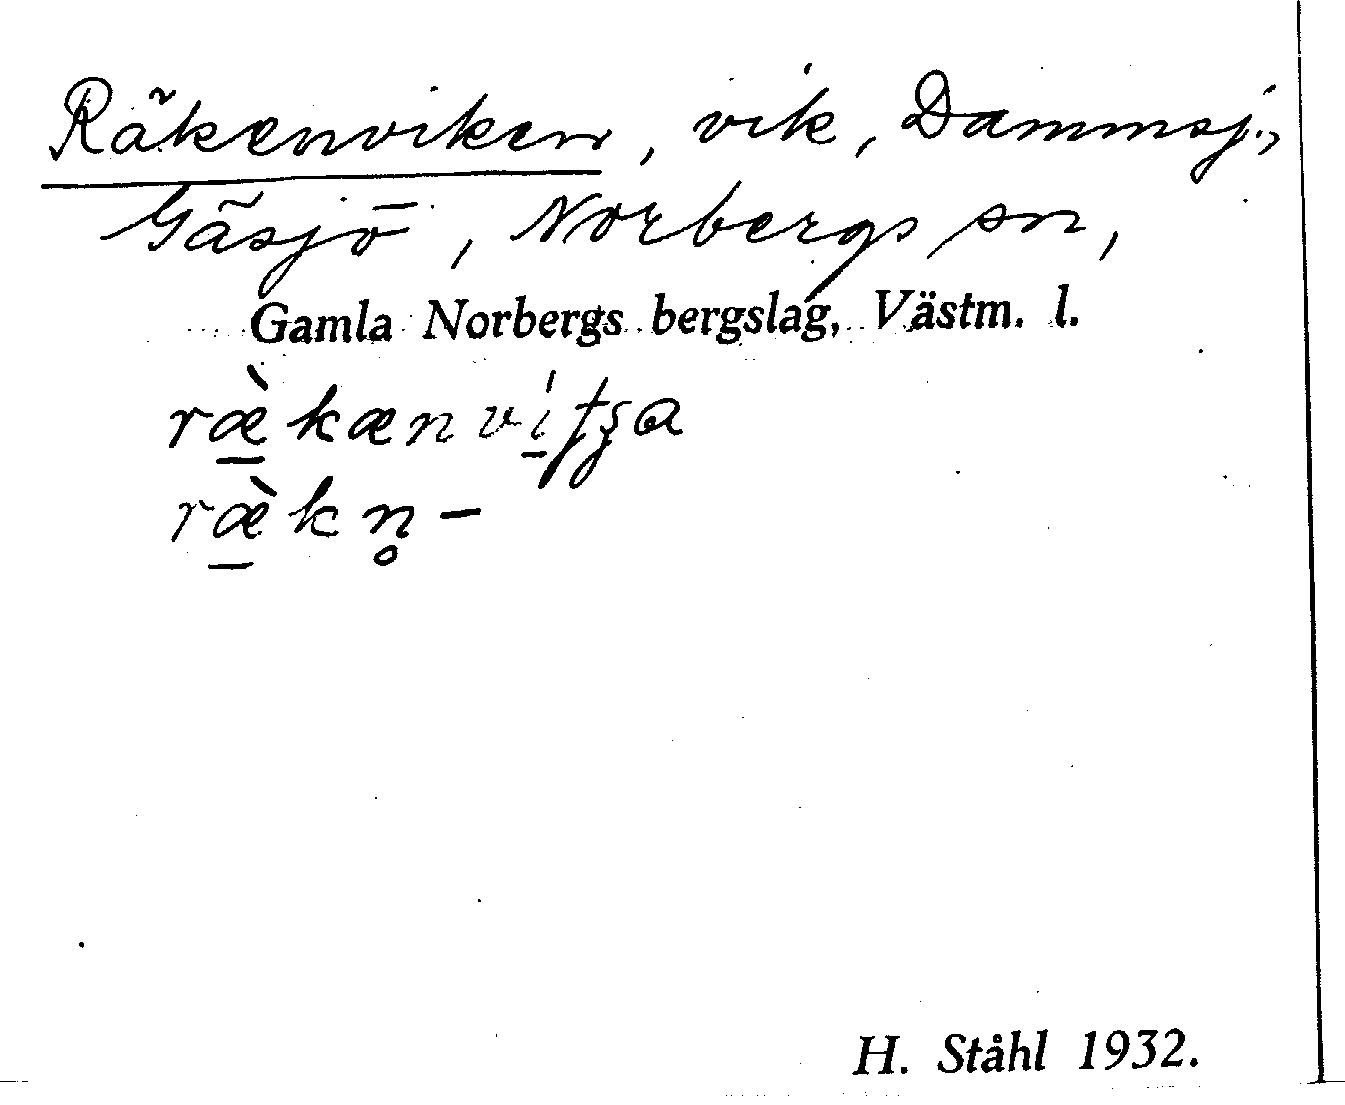 Räkenviken, vik, Dammsj.,
Gäsjö, Norbergs sn,
Gamla Norbergs bergslag, Västm. l.
ræ̲̀kænví̲tʒa
ræ̲̀kn̥-
H. Ståhl 1932.